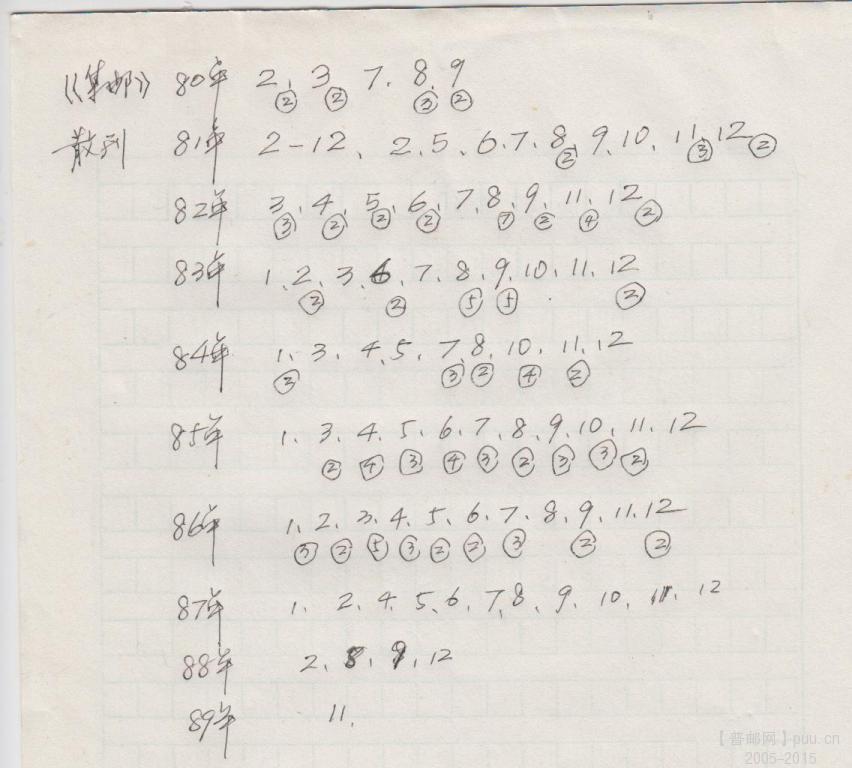 《集邮》 80年 2、3 7、8、9
② ② ③ ②
散刊 81年 2-12、2、5、6、7、8、9、10、11、12
② ③ ②
82年 3、4、5、6、7、8、9、11、12
③ ② ② ② ⑦ ② ④ ②
83年 1、2、3、6、7、8、9、10、11、12
② ② ⑤ ⑤ ②
84年 1、3、4、5、7、8、10、11、12
③ ③ ② ④ ②
85年 1、3、4、5、6、7、8、9、10、11、12
② ④ ③ ④ ③ ② ③ ③ ②
86年 1、2、3、4、5、6、7、8、9、11、12
③ ② ⑤ ③ ② ② ③ ② ②
87年 1、2、4、5、6、7、8、9、10、11、12
88年 2、8、9、12
89年 11、
【普邮网】puu.cn
2005-2015